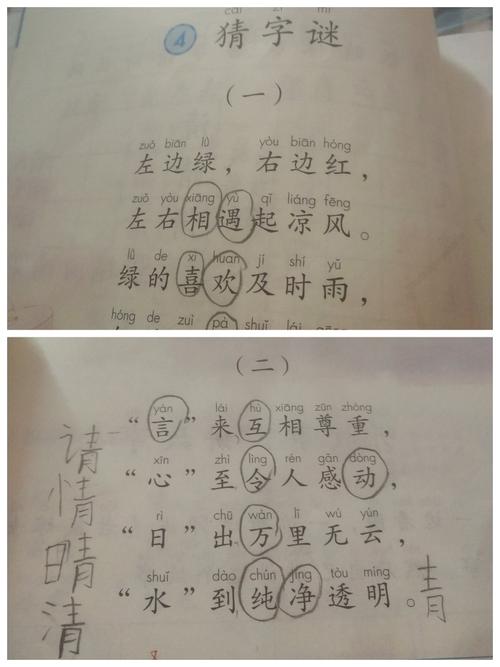 cāi zì mí
4 猜字谜
（一）
zuǒ biān lǜ yòu biān hóng
左边绿，右边红，
zuǒ yòu xiāng yù qǐ liáng fēng
左右相遇起凉风。
lǜ de xǐ huān jí shí yǔ
绿的喜欢及时雨，
hóng de zuì pà shuǐ
（二）
yán lái hù xiāng zūn zhòng
“言”来互相尊重，
xīn zhì lìng rén gǎn dòng
“心”至令人感动，
rì chū wàn lǐ wú yún
“日”出万里无云，
shuǐ dào chún jìng tòu míng
“水”到纯净透明。
请
情
晴
清
青